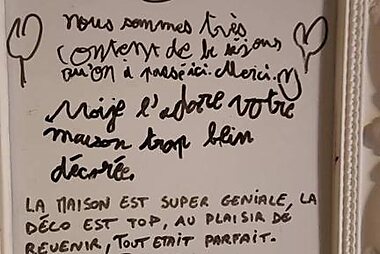 nous sommes très
content de le séjour
qu'on a passé ici. Merci.
Moije l'adore votre
maison trop blin
décorée.
LA MAISON EST SUPER GENIALE, LA
DÉCO EST TOP, AU PLAISIR DE
REVENIR, TOUT ETAIT PARFAIT.